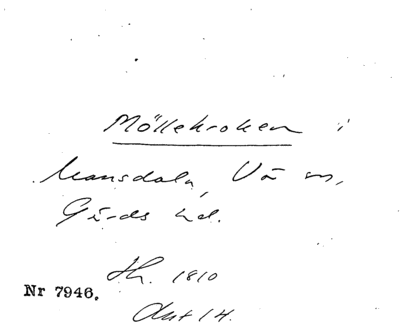 Möllekroken i
Mansdala, Vä sn,
Gärds hd.
Th. 1810
Nr 7946.
Akt 14.